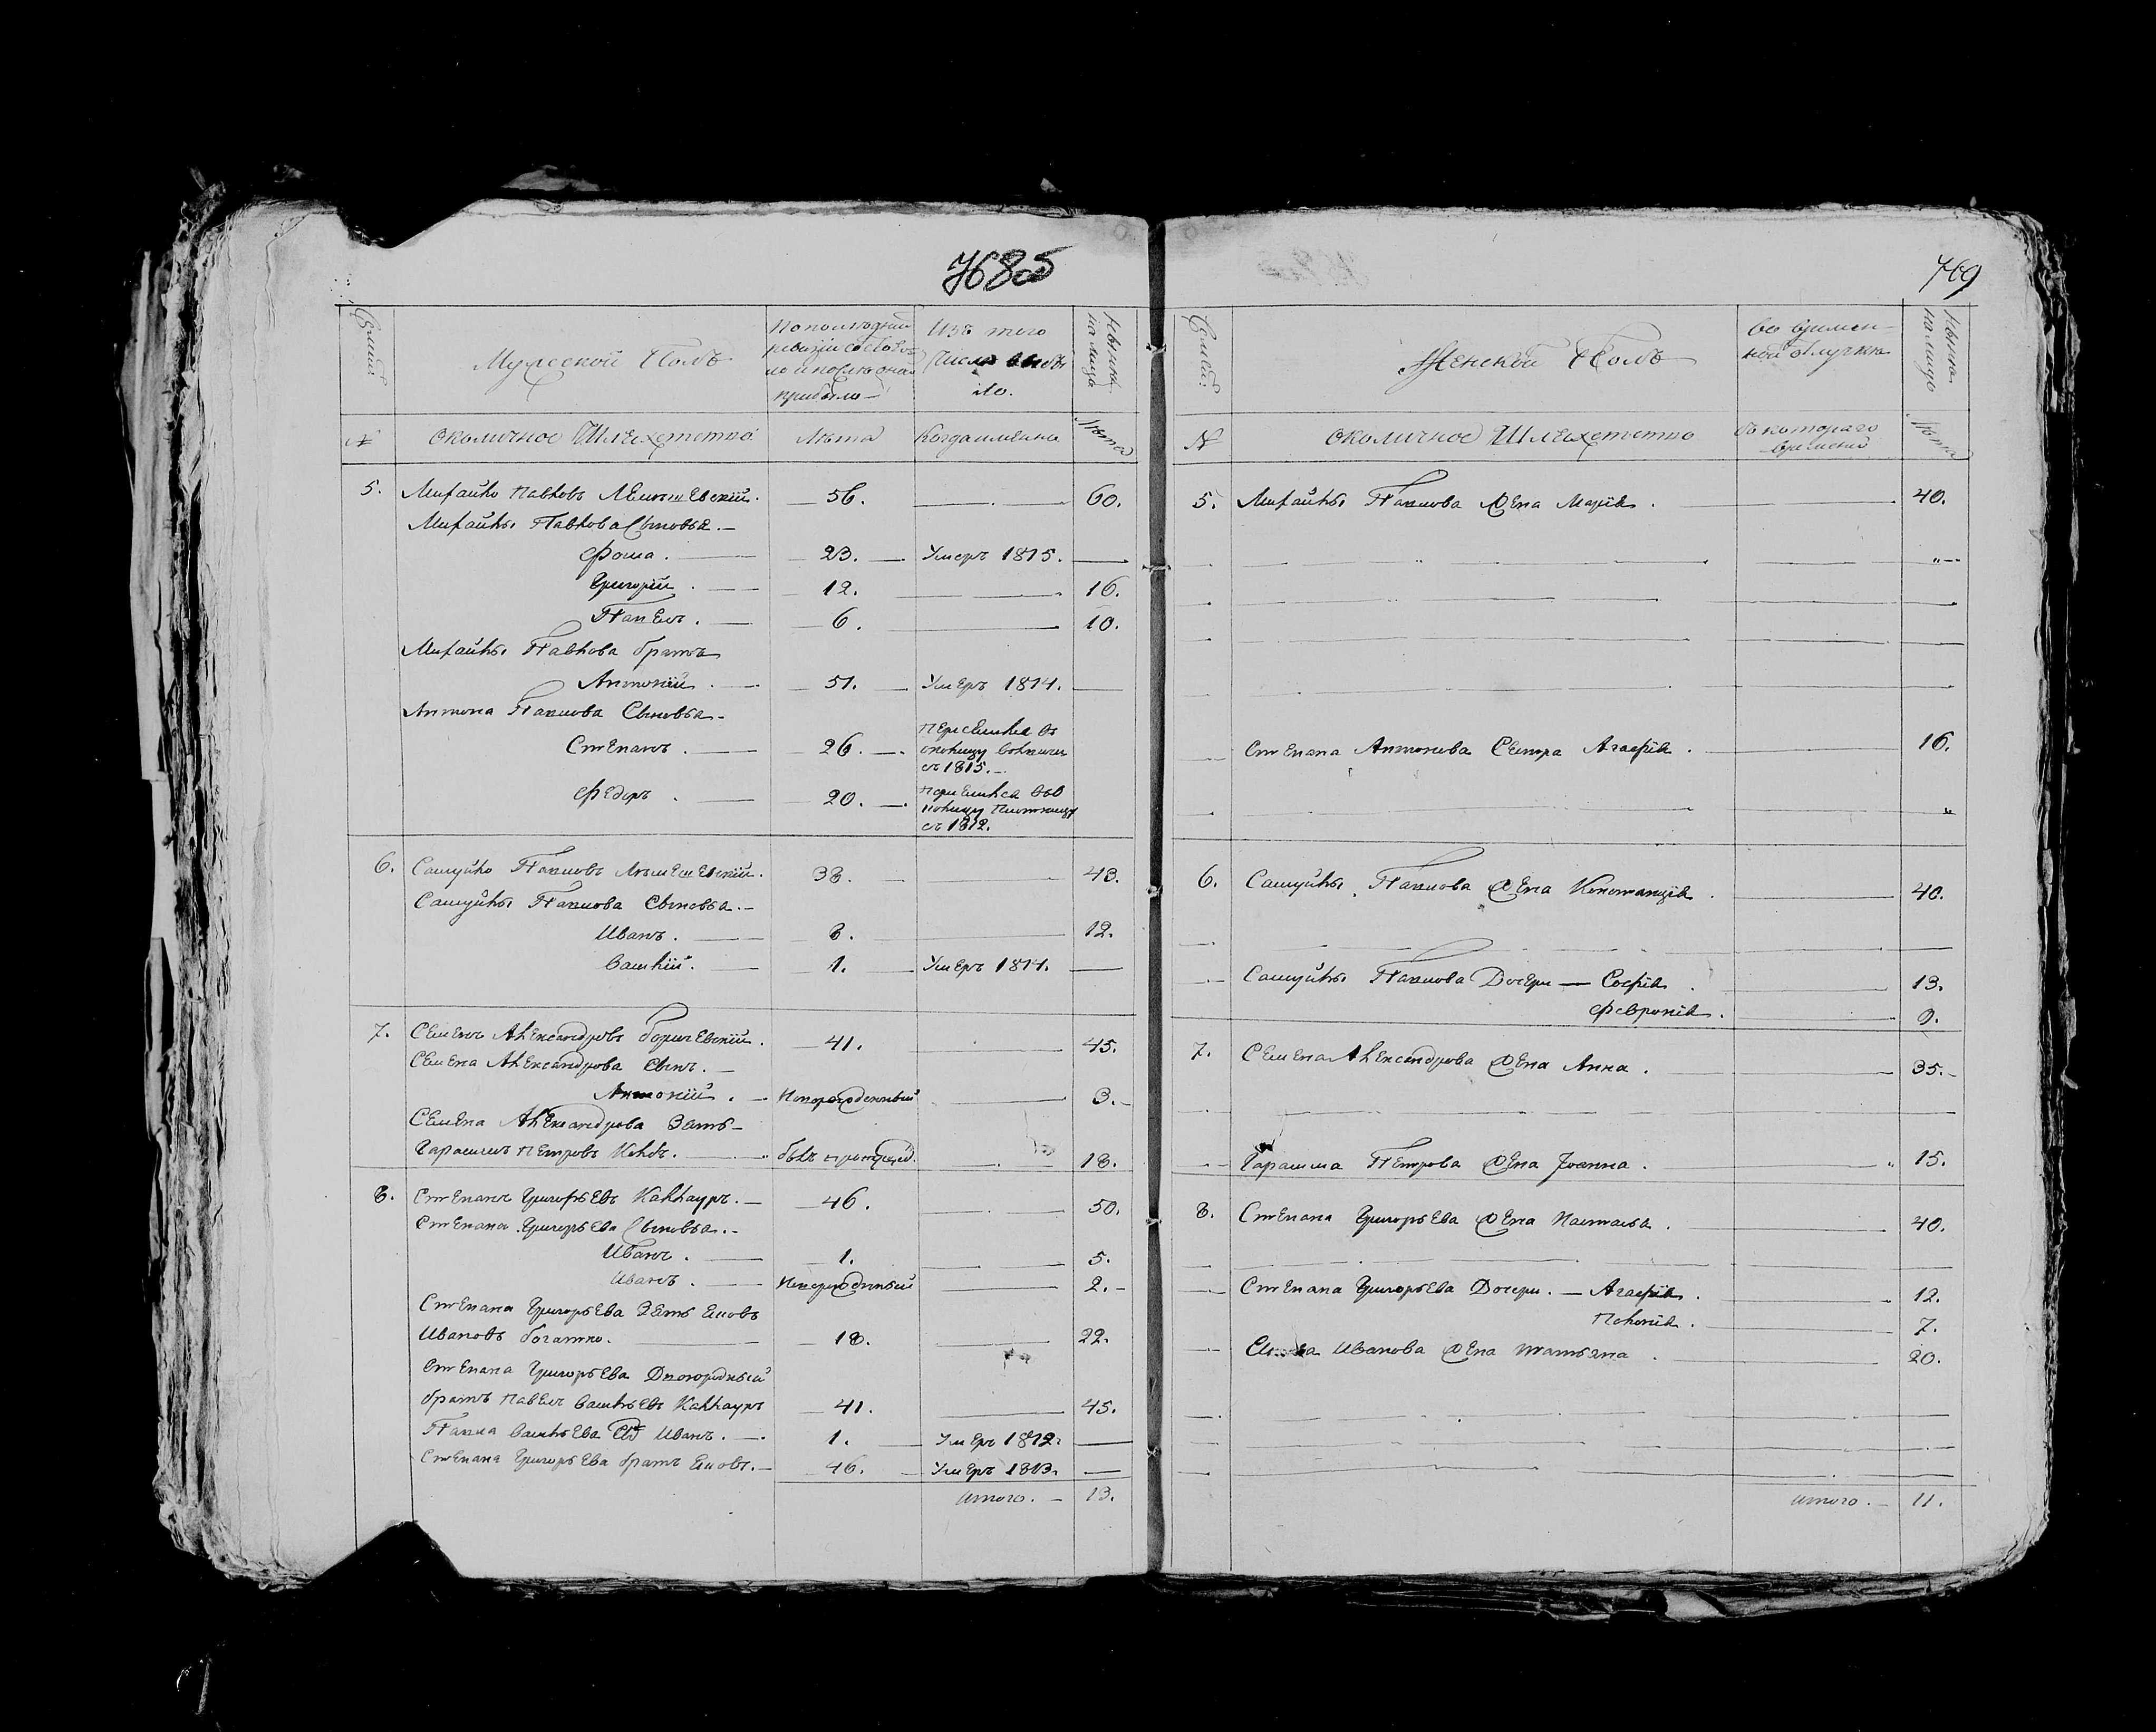 7685
769
Семьи
Мужеской Полъ
По последней
ревизіи состоя-
ло и после оной
прибыло
Изъ того
Числа выбы
ло.
Ныне
на лицо
№
околичное Шляхетство
Лѣта
Когда имянно
Лѣта
5. Михайло Павловъ Лемешевскій. 56. 60.
Михайлы Павлова Сыновья.
Фома. 23. Умеръ 1815.
Григорій. 12. 16.
Павелъ. 6. 10.
Михайлы Павлова братъ
Антоній. 51. Умеръ 1814.
Антона Павлова Сыновья
Степанъ. 26. Переселился въ
околицу
съ 1815.
Федоръ. 20. Переселился въ о
колицу
съ 1812.
6. Самуйло Павловъ Лемешевскій. 38. 43.
Самуйлы Павлова Сыновья.
Иванъ. 8. 12.
Василій. 1. Умеръ 1814.
7. Семенъ Александровъ Боричевскій. 41. 45.
Семена Александрова Сынъ.
Антоній. Новорожденный 3.
Семена Александрова Зять
Гарасимъ Петровъ былъ пропущ. 18.
8. Степанъ Григорьевъ Каллауръ. 46. 50.
Степана Григорьева Сыновья.
Иванъ. 1. 5.
Иванъ. Новорожденный 2.
Степана Григорьева Зять Яковъ
Ивановъ Богатко. 18. 22.
Степана Григорьева Двоюродный
братъ Павелъ Васильевъ Каллауръ 41. 45.
Павла Васильева Сынъ Иванъ. 1. Умеръ 1812.
Степана Григорьева братъ Яковъ. 46. Умеръ 1813.
Итого. 13.
Семьи
Женской Полъ
во времен-
ной отлучке
Ныне
на лицо
№
околичное Шляхетство
съ котораго
времени
Лѣта
5. Михайлы Павлова Жена Марія. 40.
Степана Антонова Сестра Агафія. 16.
6. Самуйлы Павлова Жена Констанція. 40.
Самуйлы Павлова Дочери — Софія. 13.
Февронія. 9.
7. Семена Александрова Жена Анна. 35.
Гарасима Петрова Жена Іоанна. 15.
8. Степана Григорьева Жена Наталья. 40.
Степана Григорьева Дочери. — Агафія. 12.
Полонія. 7.
Якова Иванова Жена Татьяна. 20.
Итого. 11.